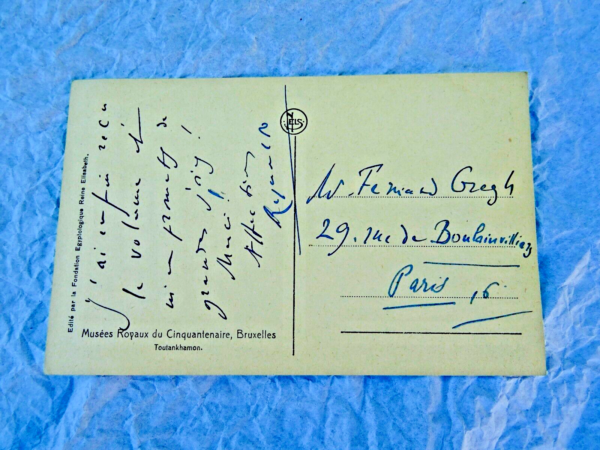 J'ai enfin reçu
le volume et
m'en promets de
grandes joies !
Merci !
Affection
Edité par la Fondation Egyptologique Reine Elisabeth.
Musées Royaux du Cinquantenaire, Bruxelles
Toutankhamon.
NELS
M. Fernand Gregh
29. rue de Boulainvilliers
Paris 16